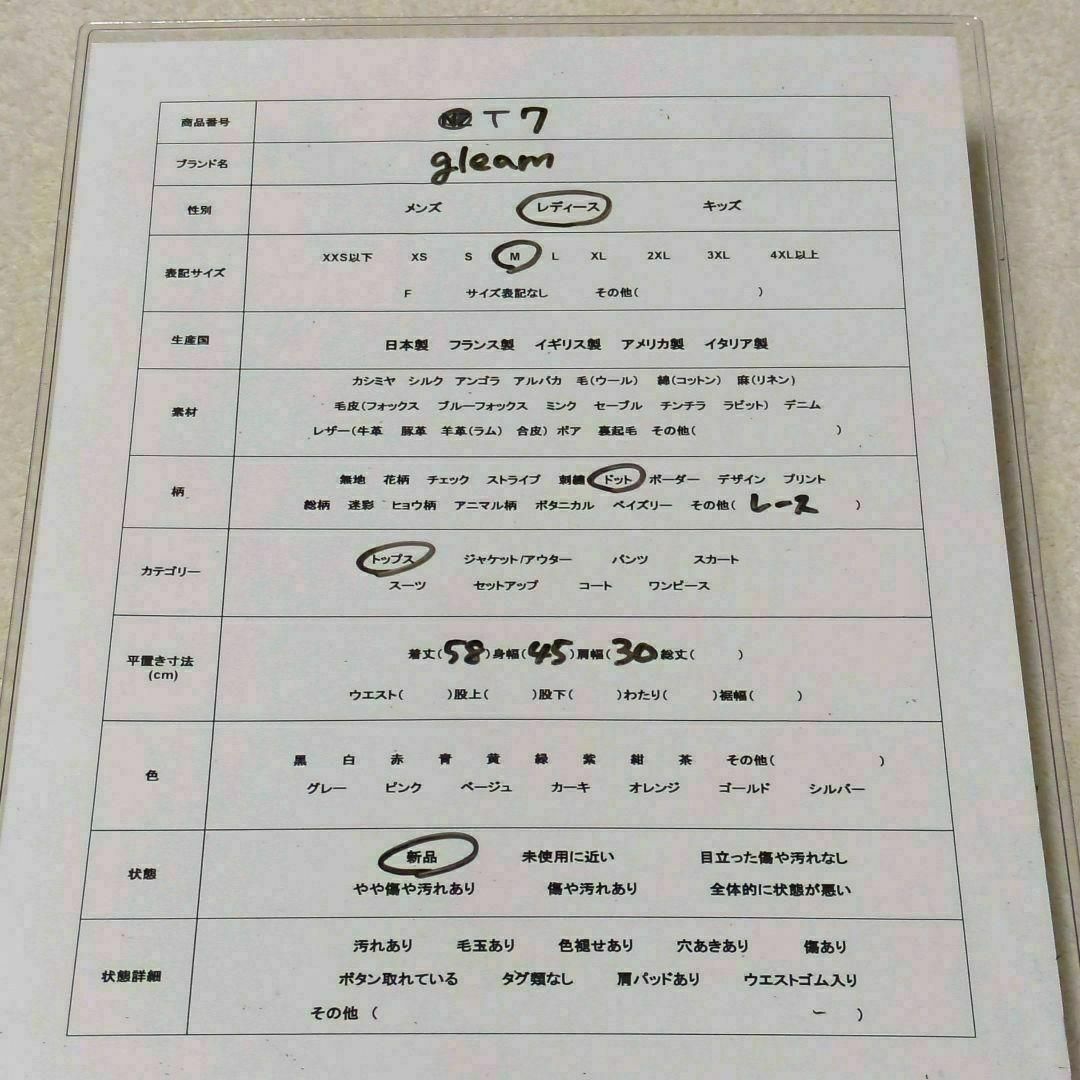 商品番号 T7
ブランド名 gleam
性別 メンズ レディース キッズ
表記サイズ XXS以下 XS S M L XL 2XL 3XL 4XL以上
F サイズ表記なし その他( )
生産国 日本製 フランス製 イギリス製 アメリカ製 イタリア製
素材 カシミヤ シルク アンゴラ アルパカ 毛(ウール) 綿(コットン) 麻(リネン)
毛皮(フォックス ブルーフォックス ミンク セーブル チンチラ ラビット) デニム
レザー(牛革 豚革 羊革(ラム) 合皮) ボア 裏起毛 その他( )
柄 無地 花柄 チェック ストライプ 刺繍 ドット ボーダー デザイン プリント
総柄 迷彩 ヒョウ柄 アニマル柄 ボタニカル ペイズリー その他( レース )
カテゴリー トップス ジャケット/アウター パンツ スカート
スーツ セットアップ コート ワンピース
平置き寸法 着丈(58)身幅(45)肩幅(30)総丈( )
(cm) ウエスト( )股上( )股下( )わたり( )裾幅( )
色 黒 白 赤 青 黄 緑 紫 紺 茶 その他( )
グレー ピンク ベージュ カーキ オレンジ ゴールド シルバー
状態 新品 未使用に近い 目立った傷や汚れなし
やや傷や汚れあり 傷や汚れあり 全体的に状態が悪い
状態詳細 汚れあり 毛玉あり 色褪せあり 穴あきあり 傷あり
ボタン取れている タグ類なし 肩パッドあり ウエストゴム入り
その他 ( )